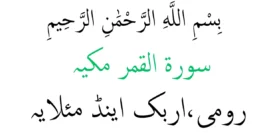 بِسْمِ اللَّهِ الرَّحْمَٰنِ الرَّحِيمِ
سورة القمر مكيہ
رومی،اربک اینڈ مئلایہ